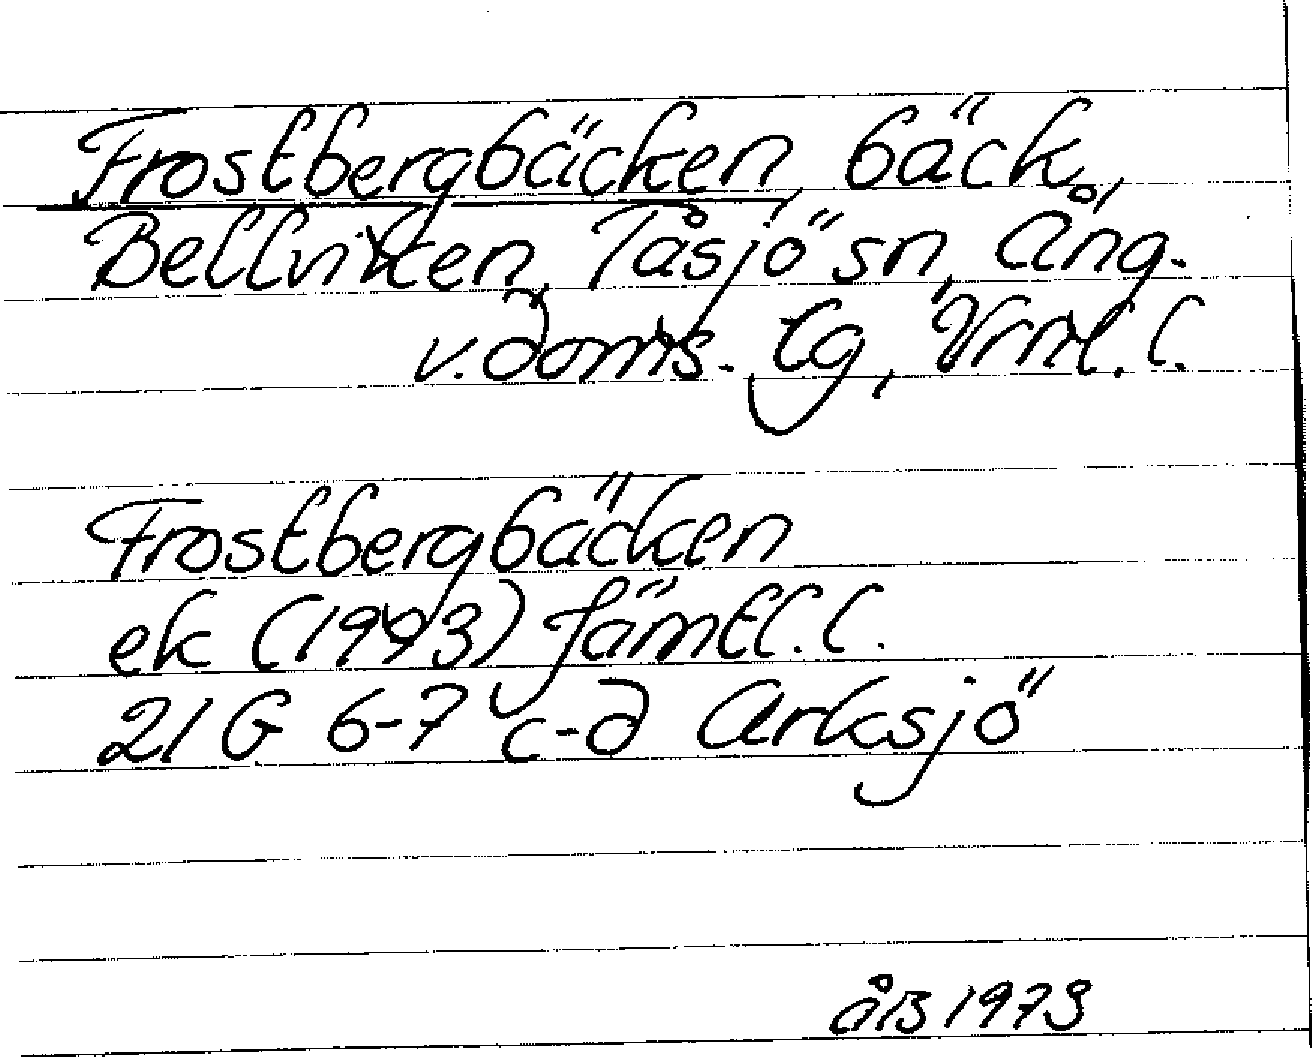 Frostbergbäcken, bäck,
Bellviken, Tåsjö sn, Ång.
v. doms. lg, Vrml. l.
Frostbergbäcken
ek (1993) Jämtl. l.
21G 6-7 c-d Arksjö
åB 1973